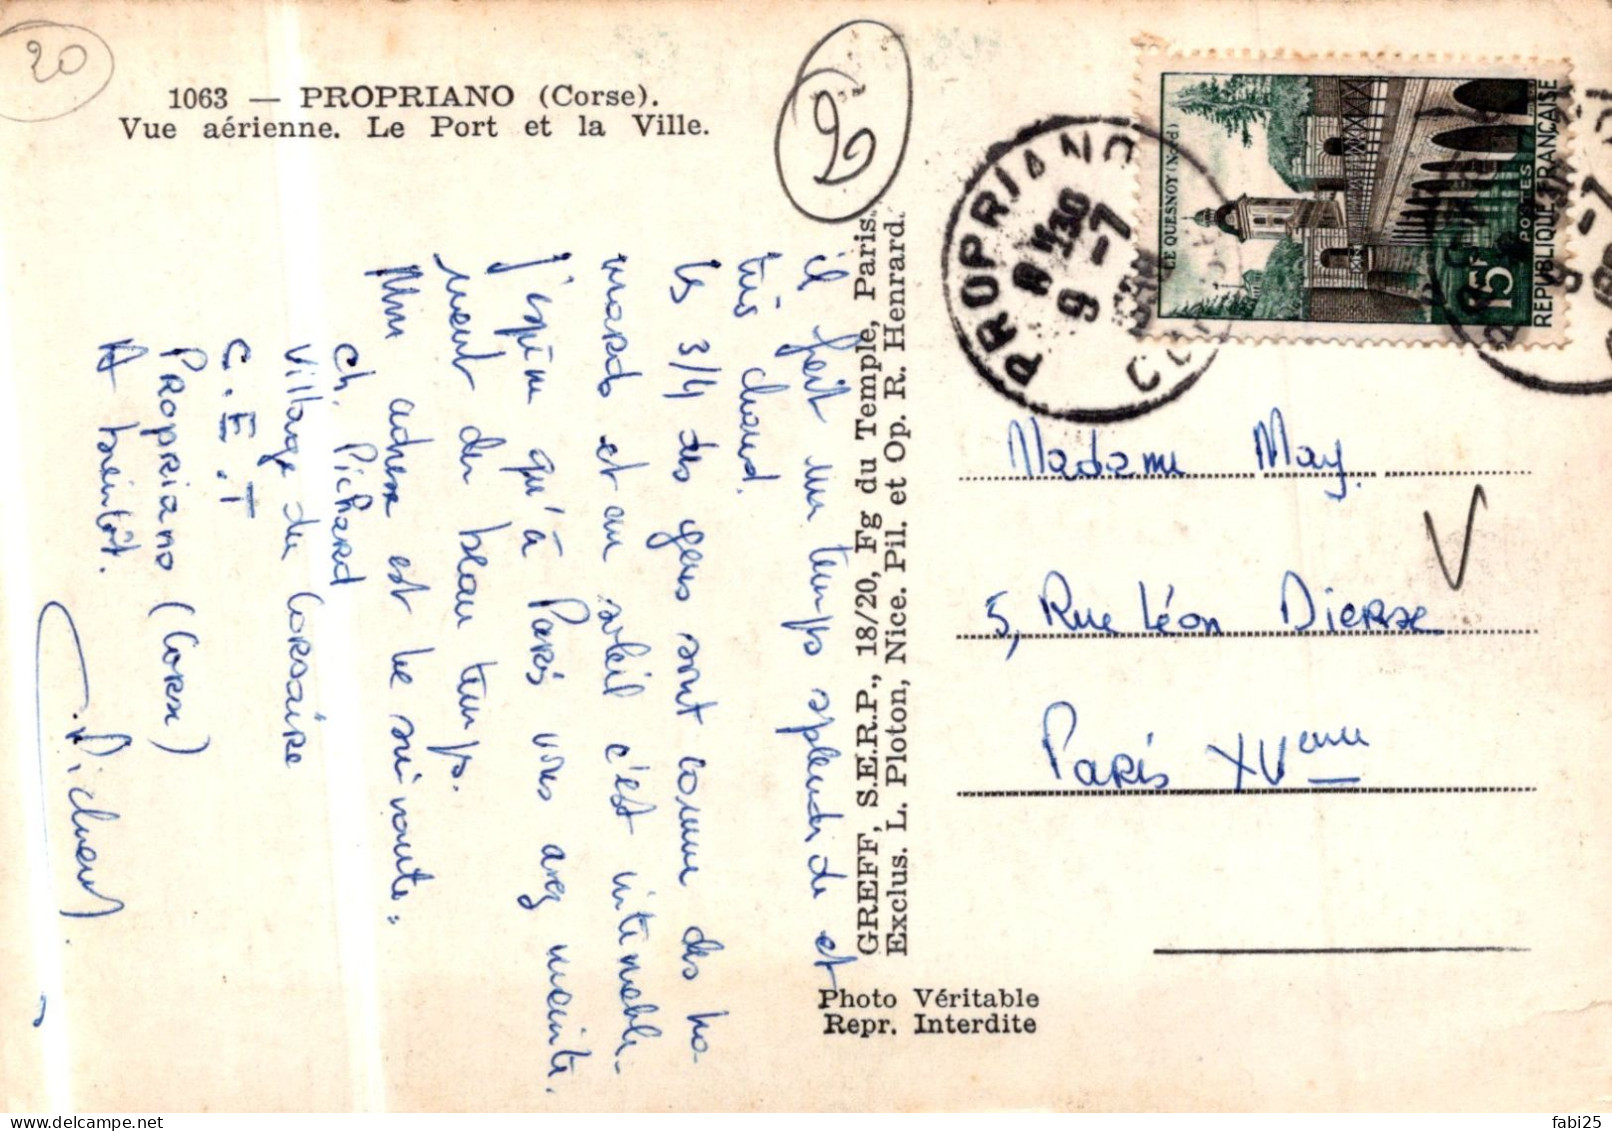 20
1063 — PROPRIANO (Corse).
Vue aérienne. Le Port et la Ville.
il fait un temps splendide et
très chaud.
les 3/4 des gens sont comme des ho-
mards et au soleil c'est intenable.
j'espère qu'à Paris vous avez
ment du beau temps.
Mon adresse est la suivante.
Ch. Pichard
Village du Corsaire
C.E.T
Propriano (Corse)
A bientôt.
Pichard
GREFF, S.E.R.P., 18/20, Fg du Temple, Paris.
Exclus. L. Ploton, Nice. Pil. et Op. R. Henrard.
Photo Véritable
Repr. Interdite
PROPRIANO
9 -7
LE QUESNOY (Nord)
15F
POSTES
REPUBLIQUE FRANÇAISE
Madame May.
5, Rue Léon Dierx
Paris XVème
V
delcampe.net
fabi25